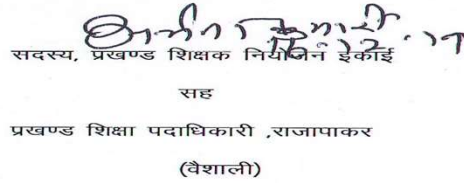 16.12.19
सदस्य, प्रखण्ड शिक्षक नियोजन इकाई
सह
प्रखण्ड शिक्षा पदाधिकारी ,राजापाकर
(वैशाली)